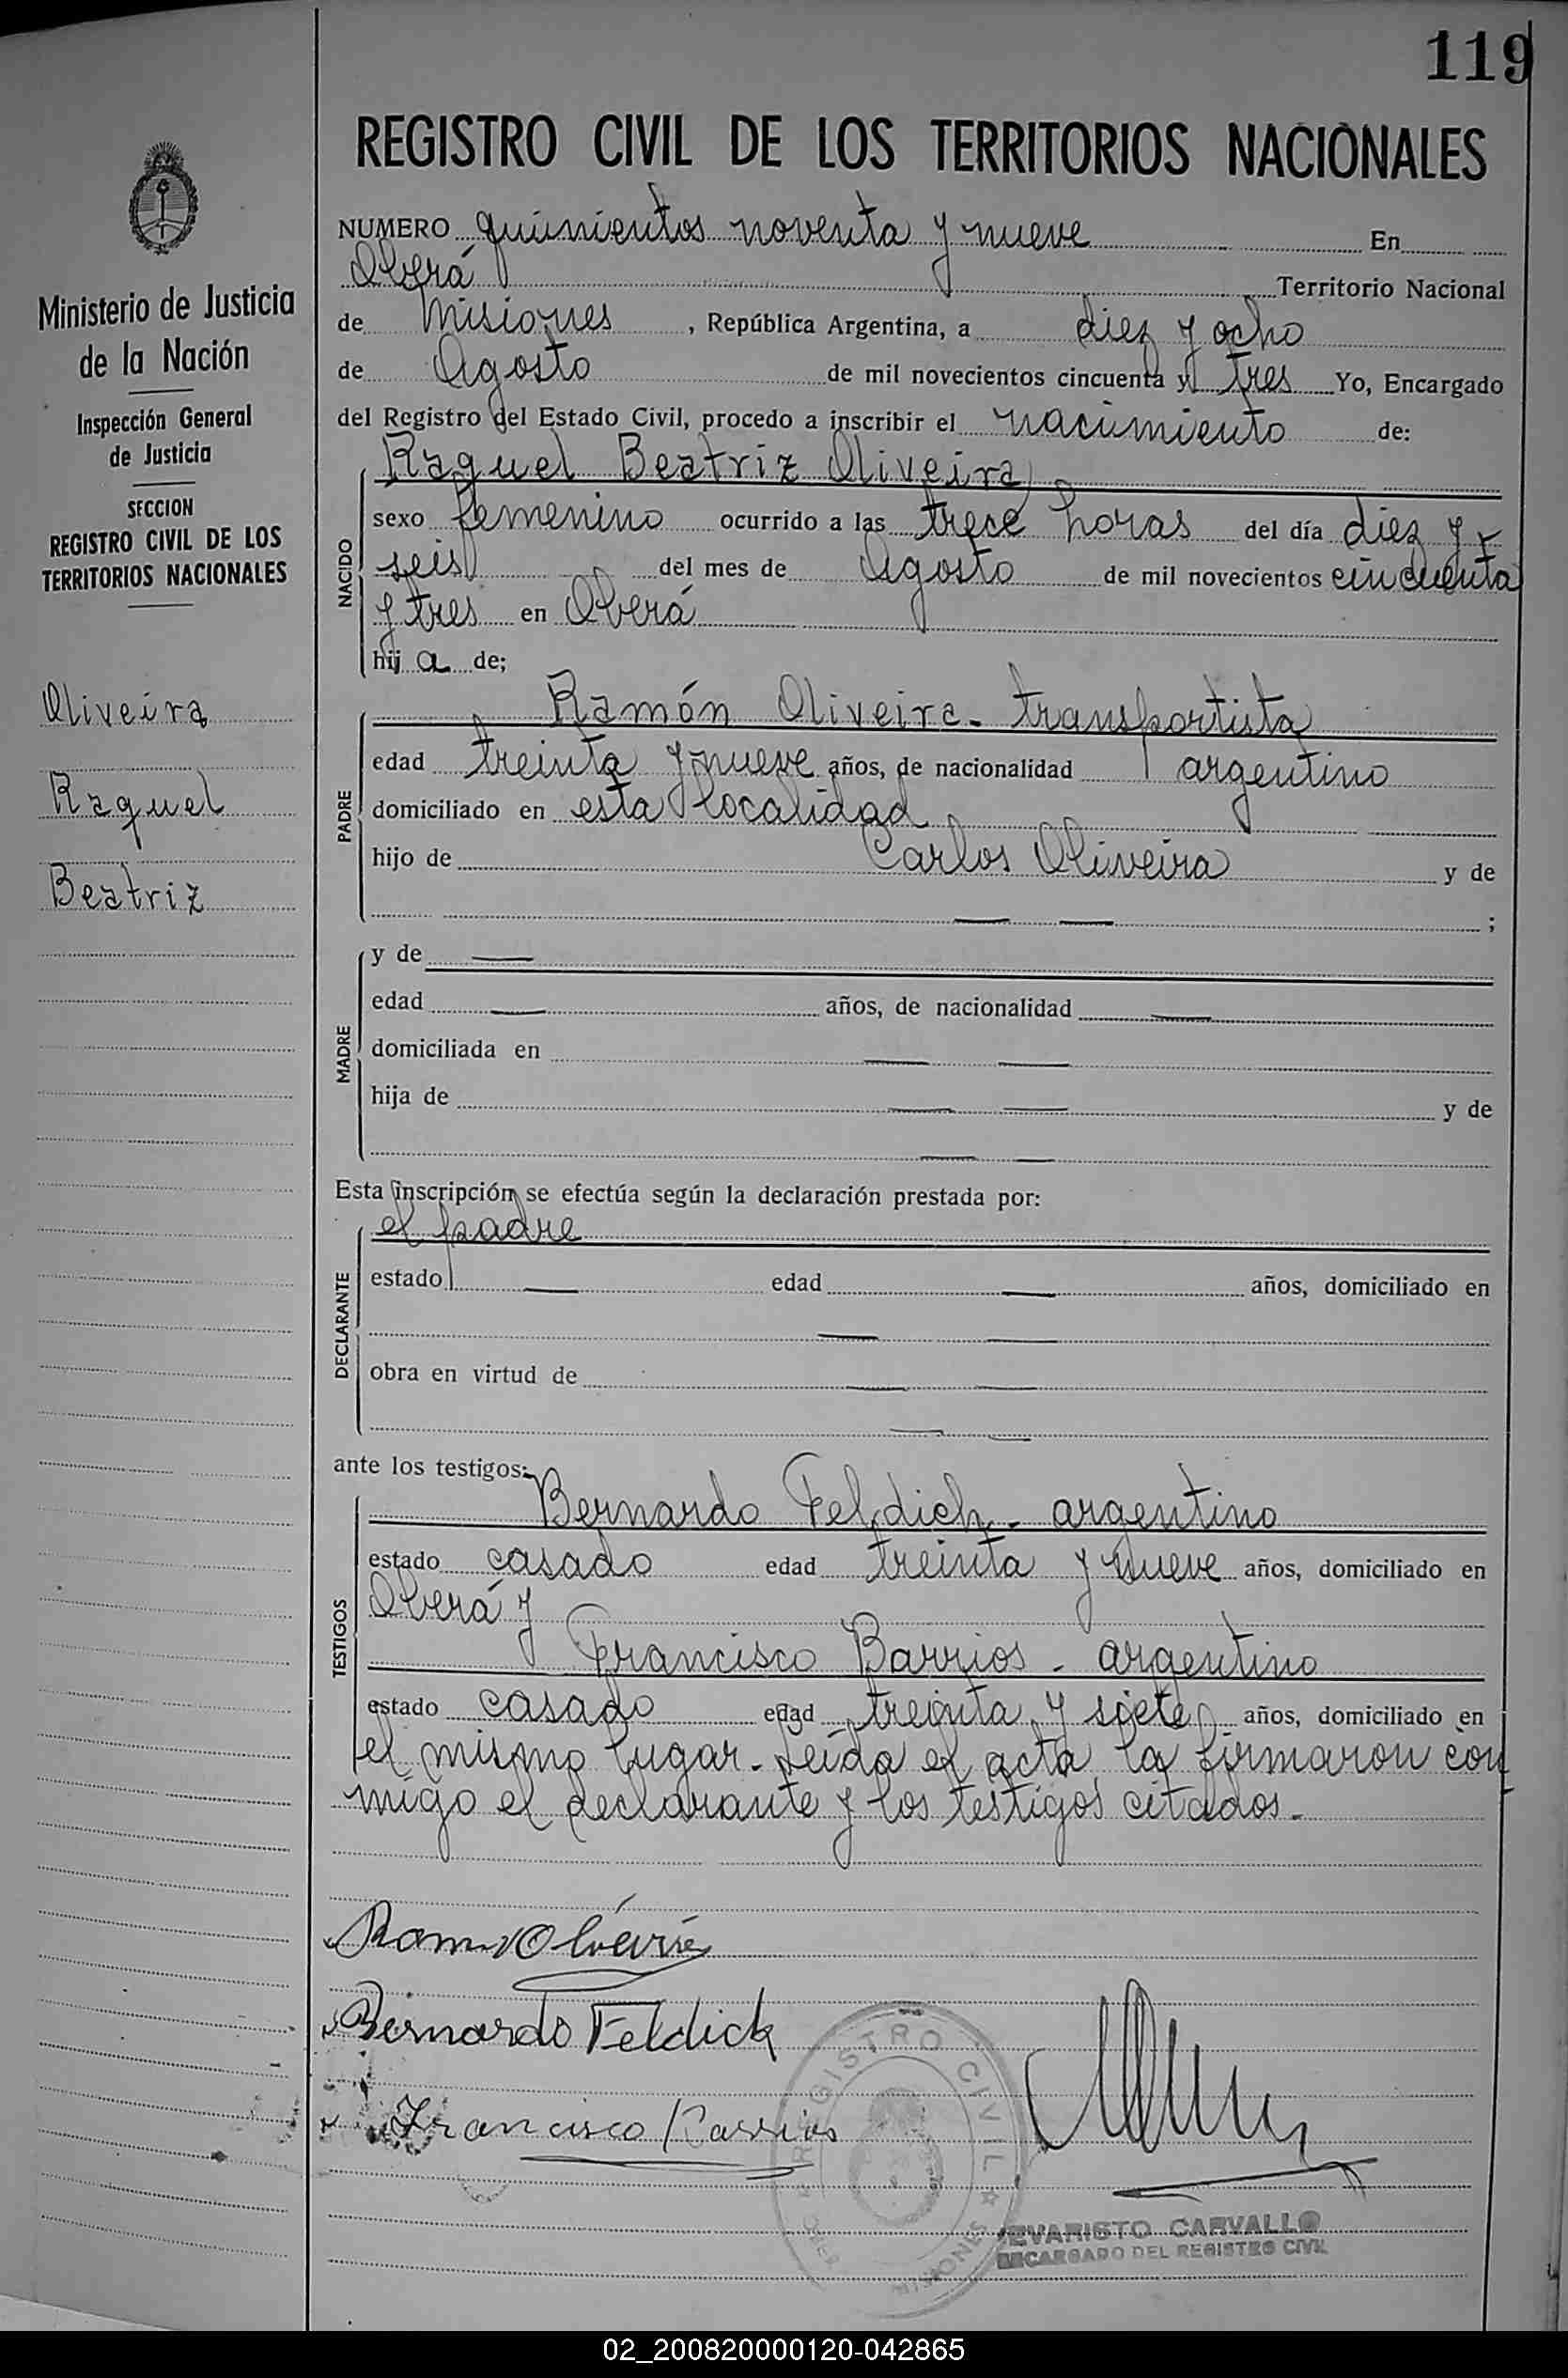 119
REGISTRO CIVIL DE LOS TERRITORIOS NACIONALES
Ministerio de Justicia
de la Nación
Inspección General
de Justicia
SECCION
REGISTRO CIVIL DE LOS
TERRITORIOS NACIONALES
Oliveira
Raquel
Beatriz
NUMERO quinientos noventa y nueve En
Oberá Territorio Nacional
de Misiones, República Argentina, a diez y ocho
de Agosto de mil novecientos cincuenta y tres Yo, Encargado
del Registro del Estado Civil, procedo a inscribir el nacimiento de:
NACIDO
Raquel Beatriz Oliveira
sexo femenino ocurrido a las trece horas del día diez y
seis del mes de Agosto de mil novecientos cincuenta
y tres en Oberá
hij a de;
PADRE
Ramón Oliveira - transportista
edad treinta y nueve años, de nacionalidad argentino
domiciliado en esta localidad
hijo de Carlos Oliveira y de
— — ;
MADRE
y de —
edad — años, de nacionalidad —
domiciliada en — —
hija de — — y de
— —
Esta inscripción se efectúa según la declaración prestada por:
DECLARANTE
el padre
estado — edad — años, domiciliado en
— —
obra en virtud de — —
— —
ante los testigos:
TESTIGOS
Bernardo Feldich - argentino
estado casado edad treinta y nueve años, domiciliado en
Oberá y
Francisco Barrios - argentino
estado casado edad treinta y siete años, domiciliado en
el mismo lugar - Leída el acta la firmaron con
migo el declarante y los testigos citados.-
Ramon Oliveira
Bernardo Feldick
Francisco Barrios
REGISTRO CIVIL
MISIONES
EVARISTO CARVALLO
ENCARGADO DEL REGISTRO CIVIL
02_200820000120-042865